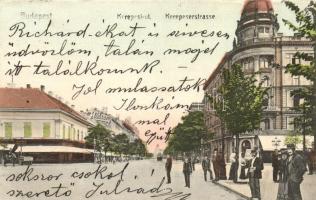 Budapest
Kerepesi-út.
Kerepeserstrasse
Richárd ékat is szivesen
üdvözlöm talán maguk
itt találkozunk.
Jol mulassatok
Ilonkám
mal
együtt
sokszor csokol
szerető